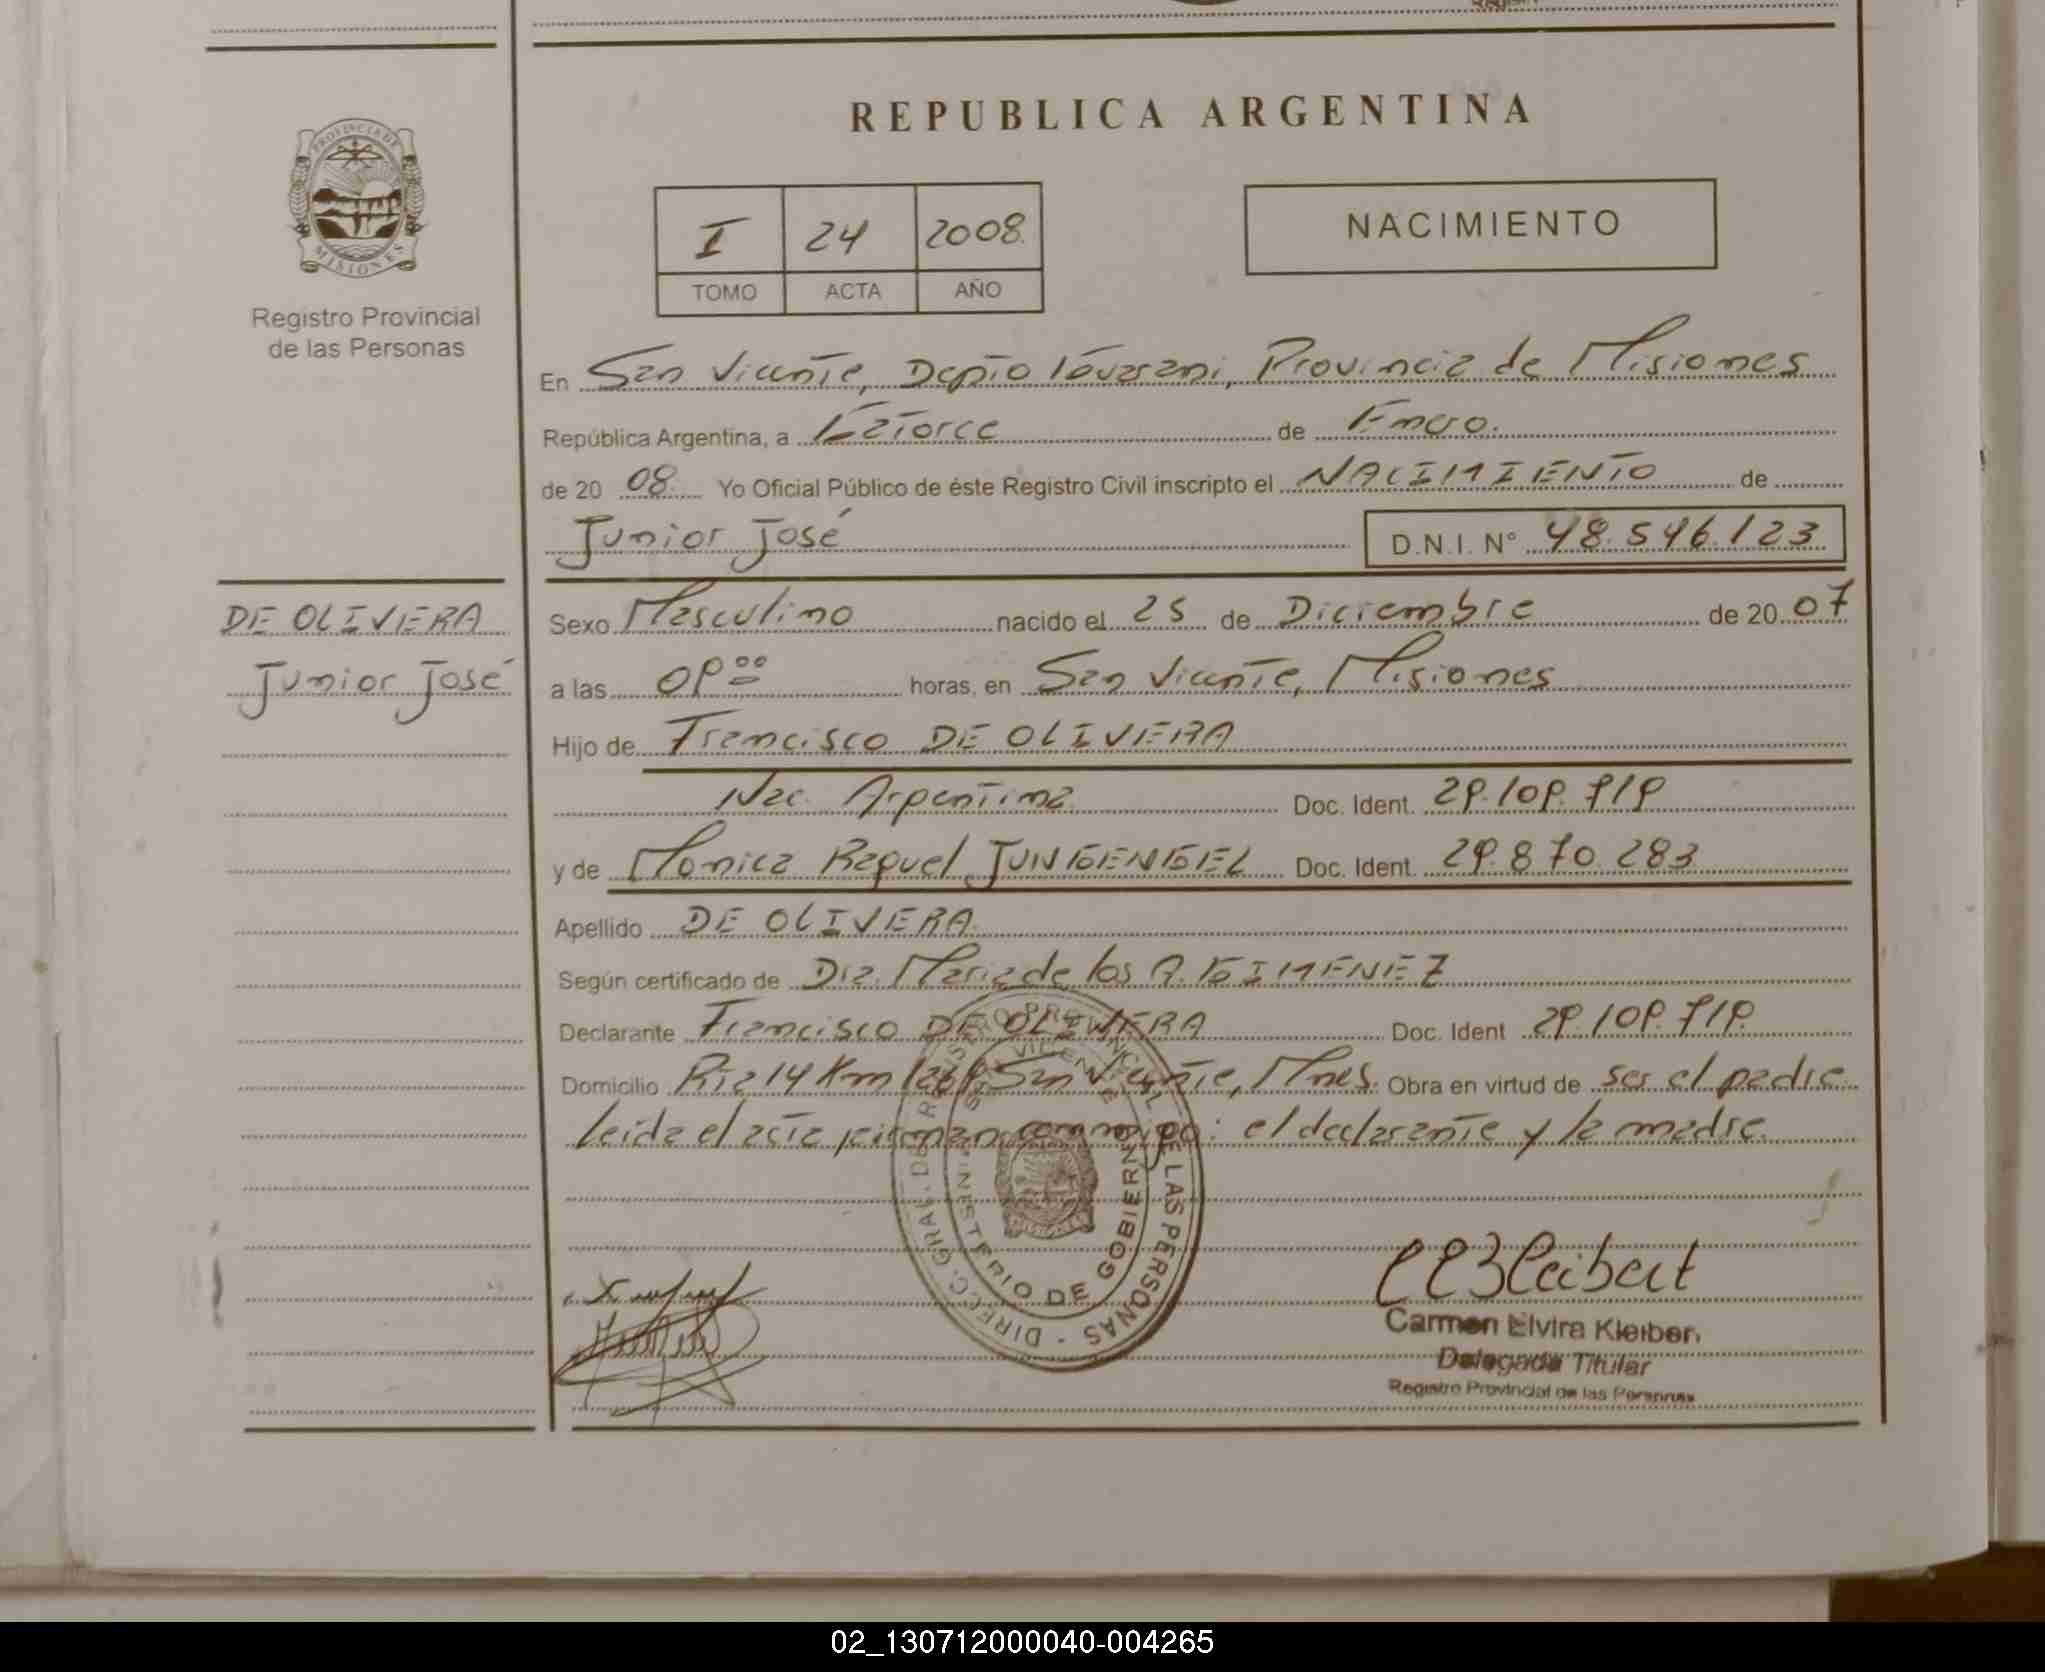 REPUBLICA ARGENTINA
PROVINCIA DE
MISIONES
Registro Provincial
de las Personas
I 24 2008
TOMO ACTA AÑO
NACIMIENTO
En San Vicente, Depto Guarani, Provincia de Misiones
República Argentina, a Catorce de Enero.
de 2008 Yo Oficial Público de éste Registro Civil inscripto el NACIMIENTO de
Junior José D.N.I. N° 48.546.123
DE OLIVERA
Junior José
Sexo Masculino nacido el 25 de Diciembre de 2007
a las 09 00 horas, en San Vicente, Misiones
Hijo de Francisco DE OLIVERA
Nac. Argentina Doc. Ident. 29.109.719
y de Monica Raquel JUNGENGEL Doc. Ident. 29.870.283
Apellido DE OLIVERA
Según certificado de Dra. Maria de los A. GIMENEZ
Declarante Francisco DE OLIVERA Doc. Ident 29.109.719
Domicilio Rta 14 Km San Vicente, Mnes. Obra en virtud de ser el padre
leida el acta firman conmigo: el declarante y la madre.
DIRECC. GRAL. DEL REGISTRO PROVINCIAL DE LAS PERSONAS -
SAN VICENTE
MINISTERIO DE GOBIERNO
Carmen Elvira Kleibert
Delegada Titular
Registro Provincial de las Personas
02_130712000040-004265